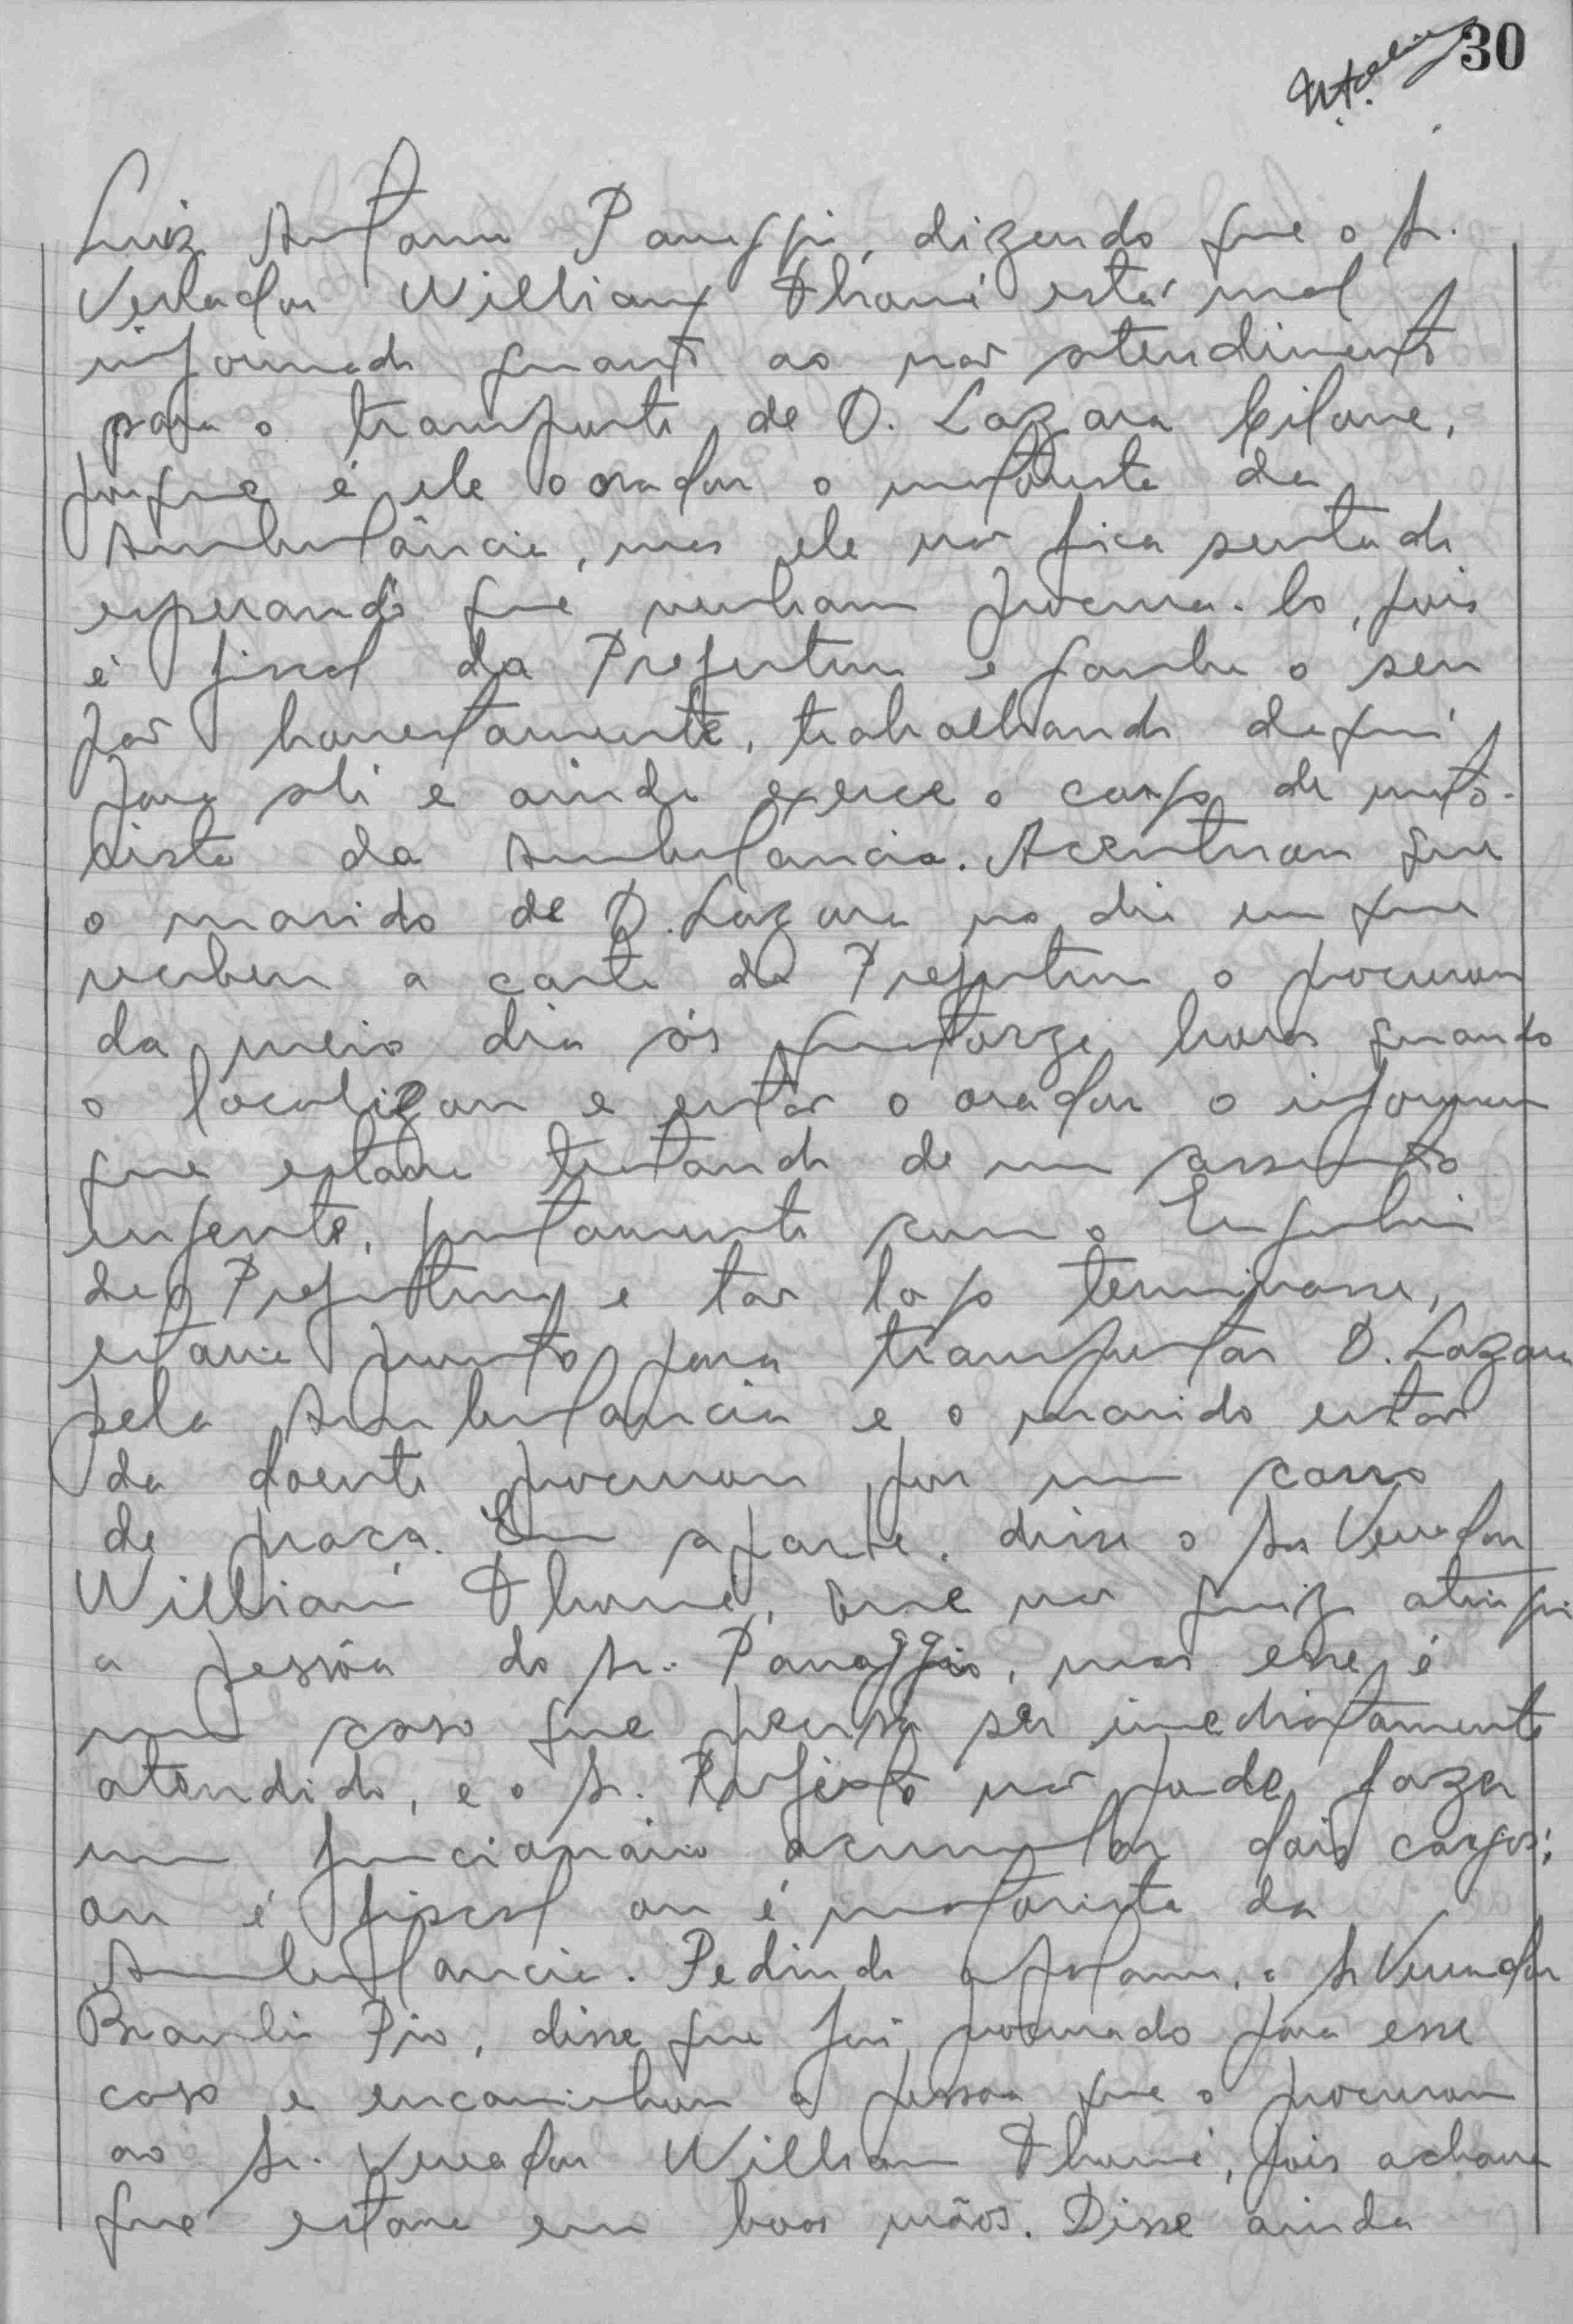 30
Luiz Antonio Panaggio, dizendo que o Sr.
Vereador William Thomé está mal
informado quanto ao não atendimento
para o transporte de D. Lazara
porque é ele o orador o motorista da
Ambulância, mas ele não fica sentado
esperando que venham procura-lo, pois
é fiscal da Prefeitura e ganha o seu
pão honestamente, trabalhando daqui
para ali e ainda exerce o cargo de moto-
rista da Ambulancia. Acentuou que
o marido de D. Lazara no dia em que
recebeu a carta da Prefeitura o procurou
da meio dia ás quatorze horas quando
o localizou e então o orador o informou
que estava tratando de um assunto
urgente, juntamente com o Engenheiro
da Prefeitura e tão logo terminasse,
estaria pronto para transportar D. Lazara
pela Ambulancia e o marido então
da doente procurou por um carro
de praça. Em aparte, disse o Sr Vereador
William Thomé, que não quiz atingir
a pessôa do Sr. Panaggio, mas esse é
um caso que precisa ser imediatamente
atendido, e o Sr. Prefeito não pode fazer
um funcionário acumular dois cargos;
ou é fiscal ou é motorista da
Ambulancia. Pedindo a palavra, o Sr Vereador
Braulio Pio, disse que foi procurado para esse
caso e encaminhou a pessoa que o procurou
ao Sr. Vereador William Thomé, pois achava
que estava em boas mãos. Disse ainda